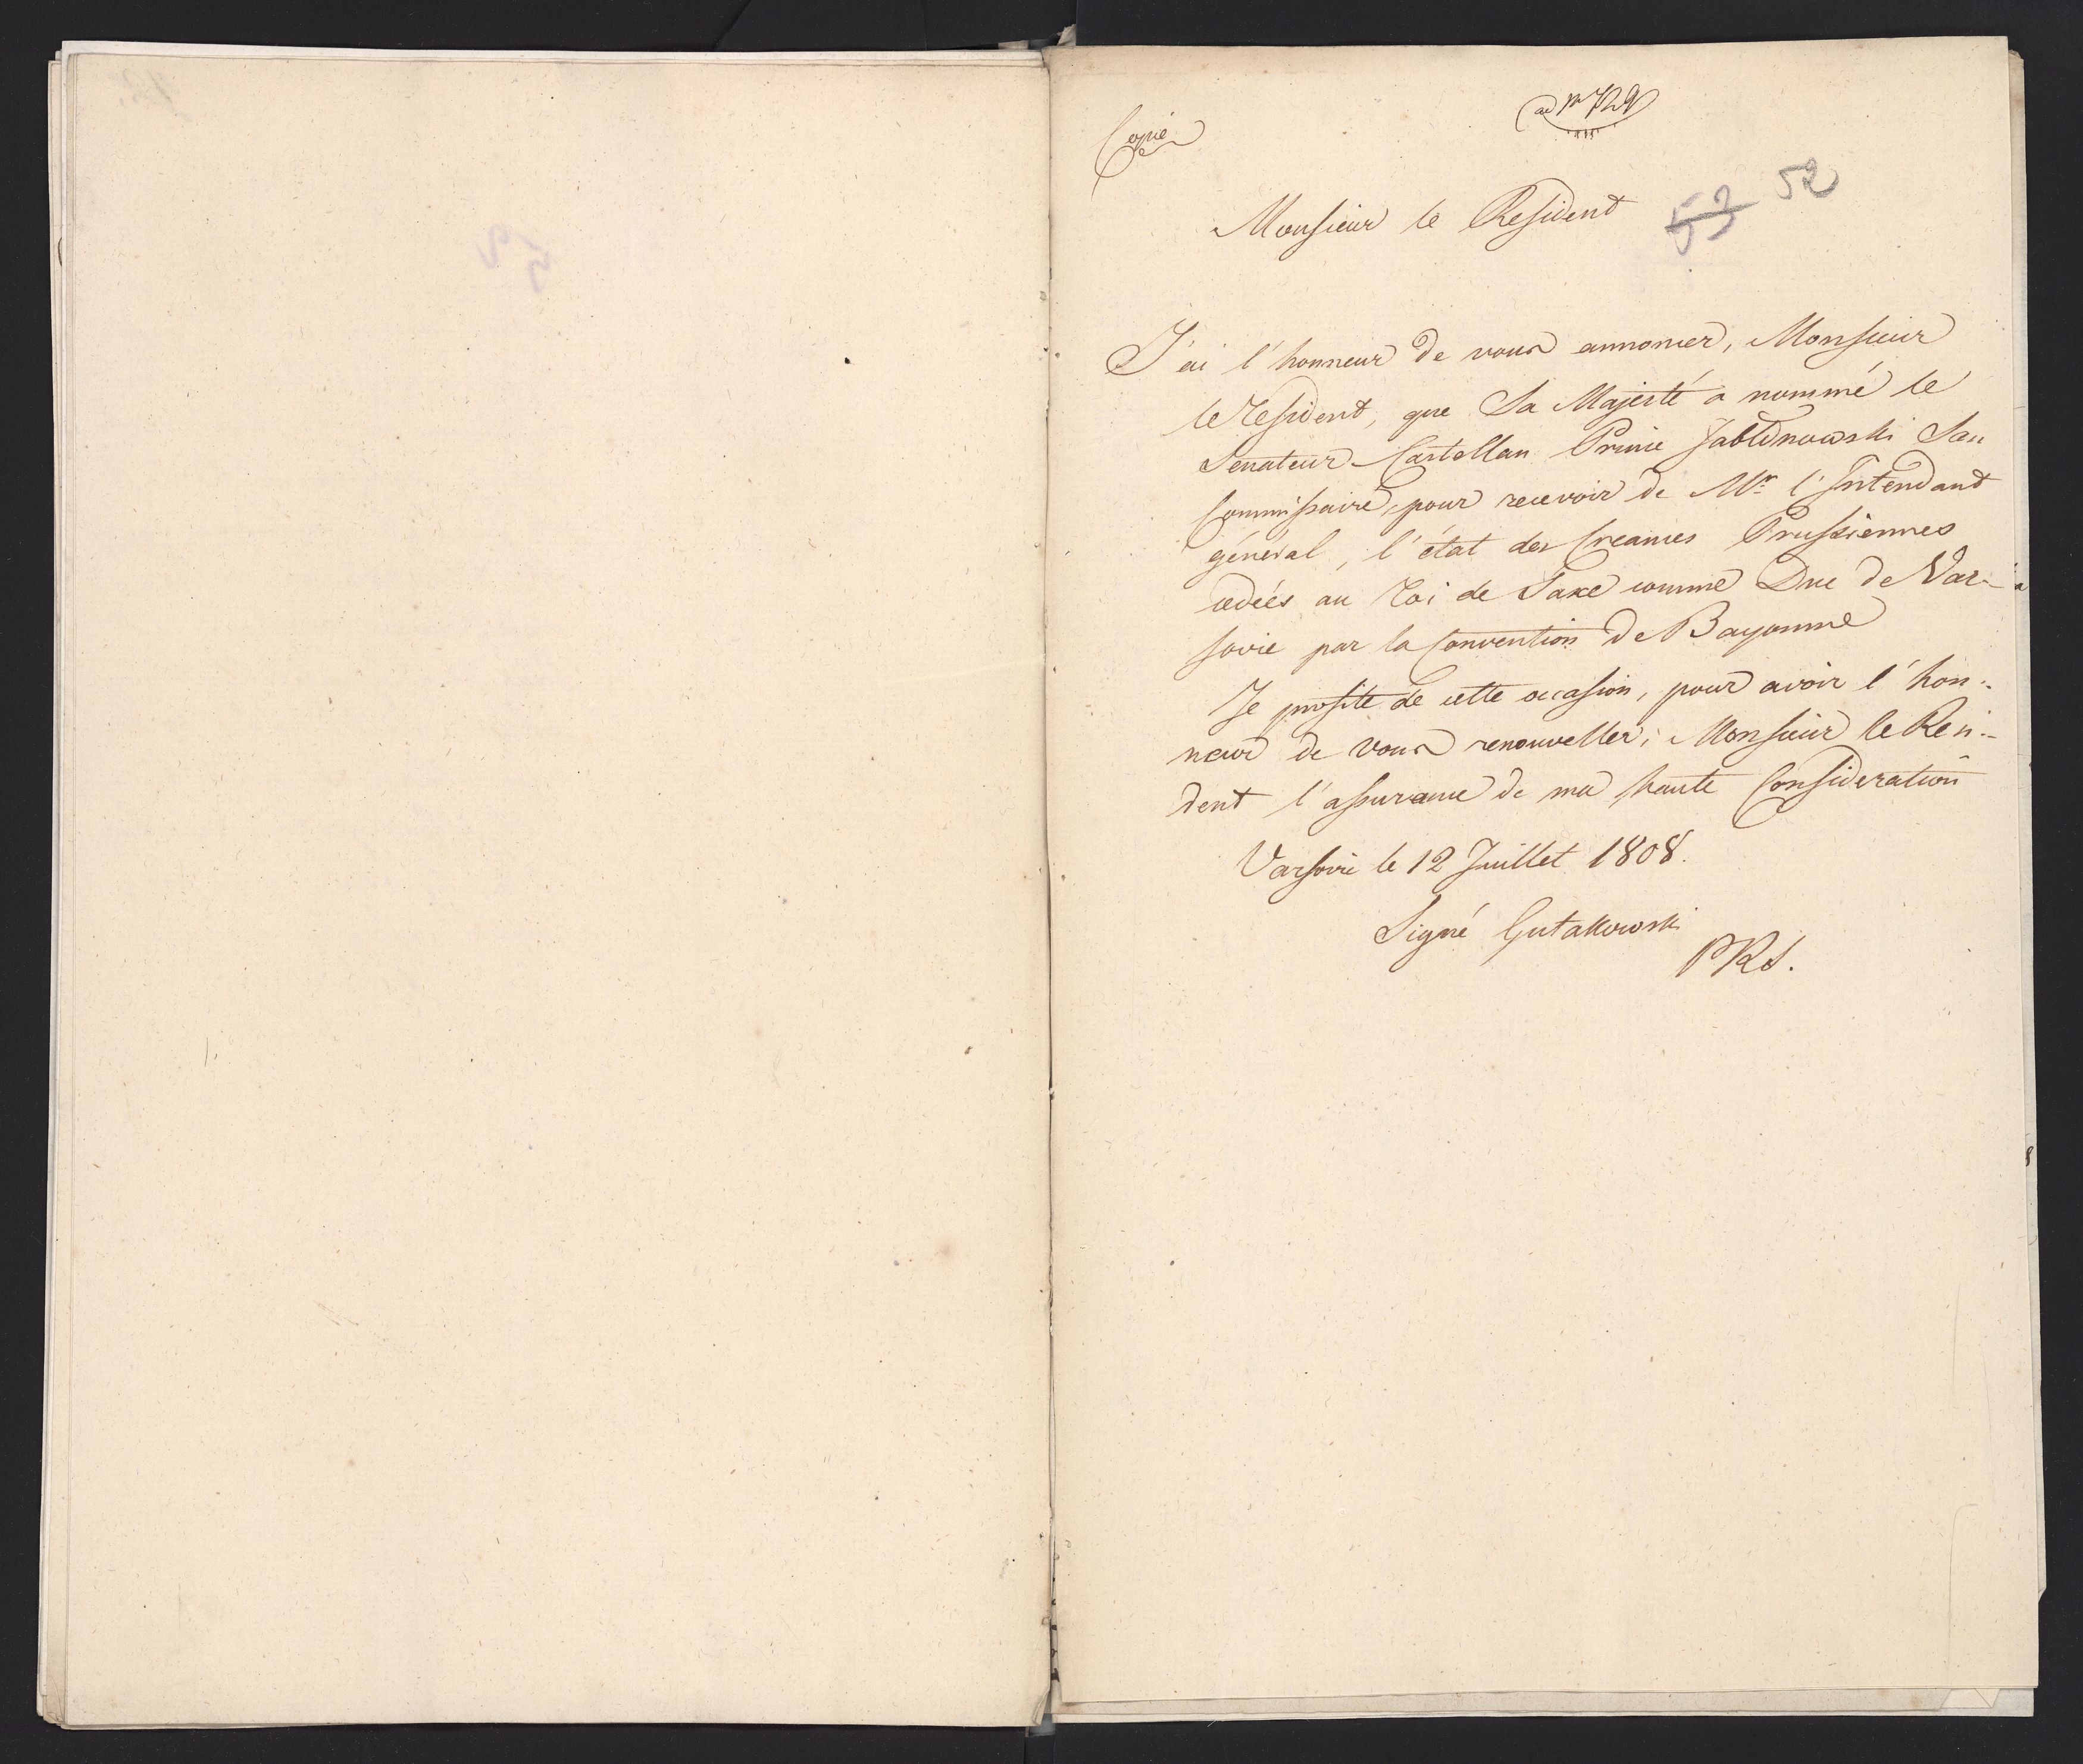 Copie
ad Nr 729
53 52
Monsieur le Resident
J'ai l'honneur de vous annoncer, Monsieur
le resident, que Sa Majesté a nommé le
Senateur-Castellan Prince Jabłonowski Son
Commissaire, pour recevoir de Mr l'Intendant
général, l'état des Creances Prussiennes
cedées au roi de Saxe comme Duc de Var-
sovie par la Convention de Bayonne
Je profite de cette occasion, pour avoir l'hon-
neur de vous renouveller, Monsieur le Resi-
dent l'assurance de ma haute Consideration
Varsovie le 12 Juillet 1808.
Signé Gutakowski
PRS.